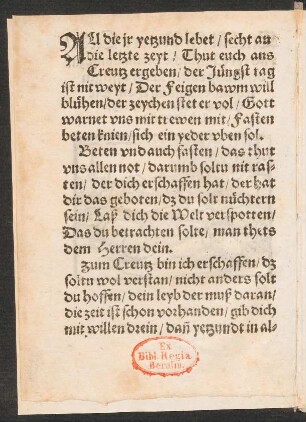 All die jr yetzund lebet / secht an
die letzte zeyt / Thut euch ans
Creutz ergeben / der Jüngst tag
ist nit weyt / Der Feigen bawm will
blühen / der zeychen stet er vol / Gott
warnet vns mit trewen mit / Fasten
beten knien / sich ein yeder vben sol.
Beten vnd auch fasten / das thut
vns allen not / darumb soltu nit ras-
ten / der dich erschaffen hat / der hat
dir das geboten / dz du solt nüchtern
sein / Laß dich die Welt verspotten /
Das du betrachten solte / man thets
dem Herren dein.
Zum Creutz bin ich erschaffen / dz
soltu wol verstan / nicht anders solt
du hoffen / dein leyb der muß daran /
die zeit ist schon vorhanden / gib dich
mit willen drein / dañ yetzundt in al-
Ex
Bibl. Regia
Berolin.